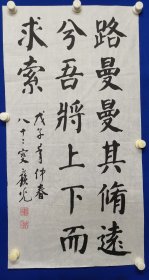 路曼曼其脩遠
兮吾將上下而
求索
戊子年仲春
八十二叟